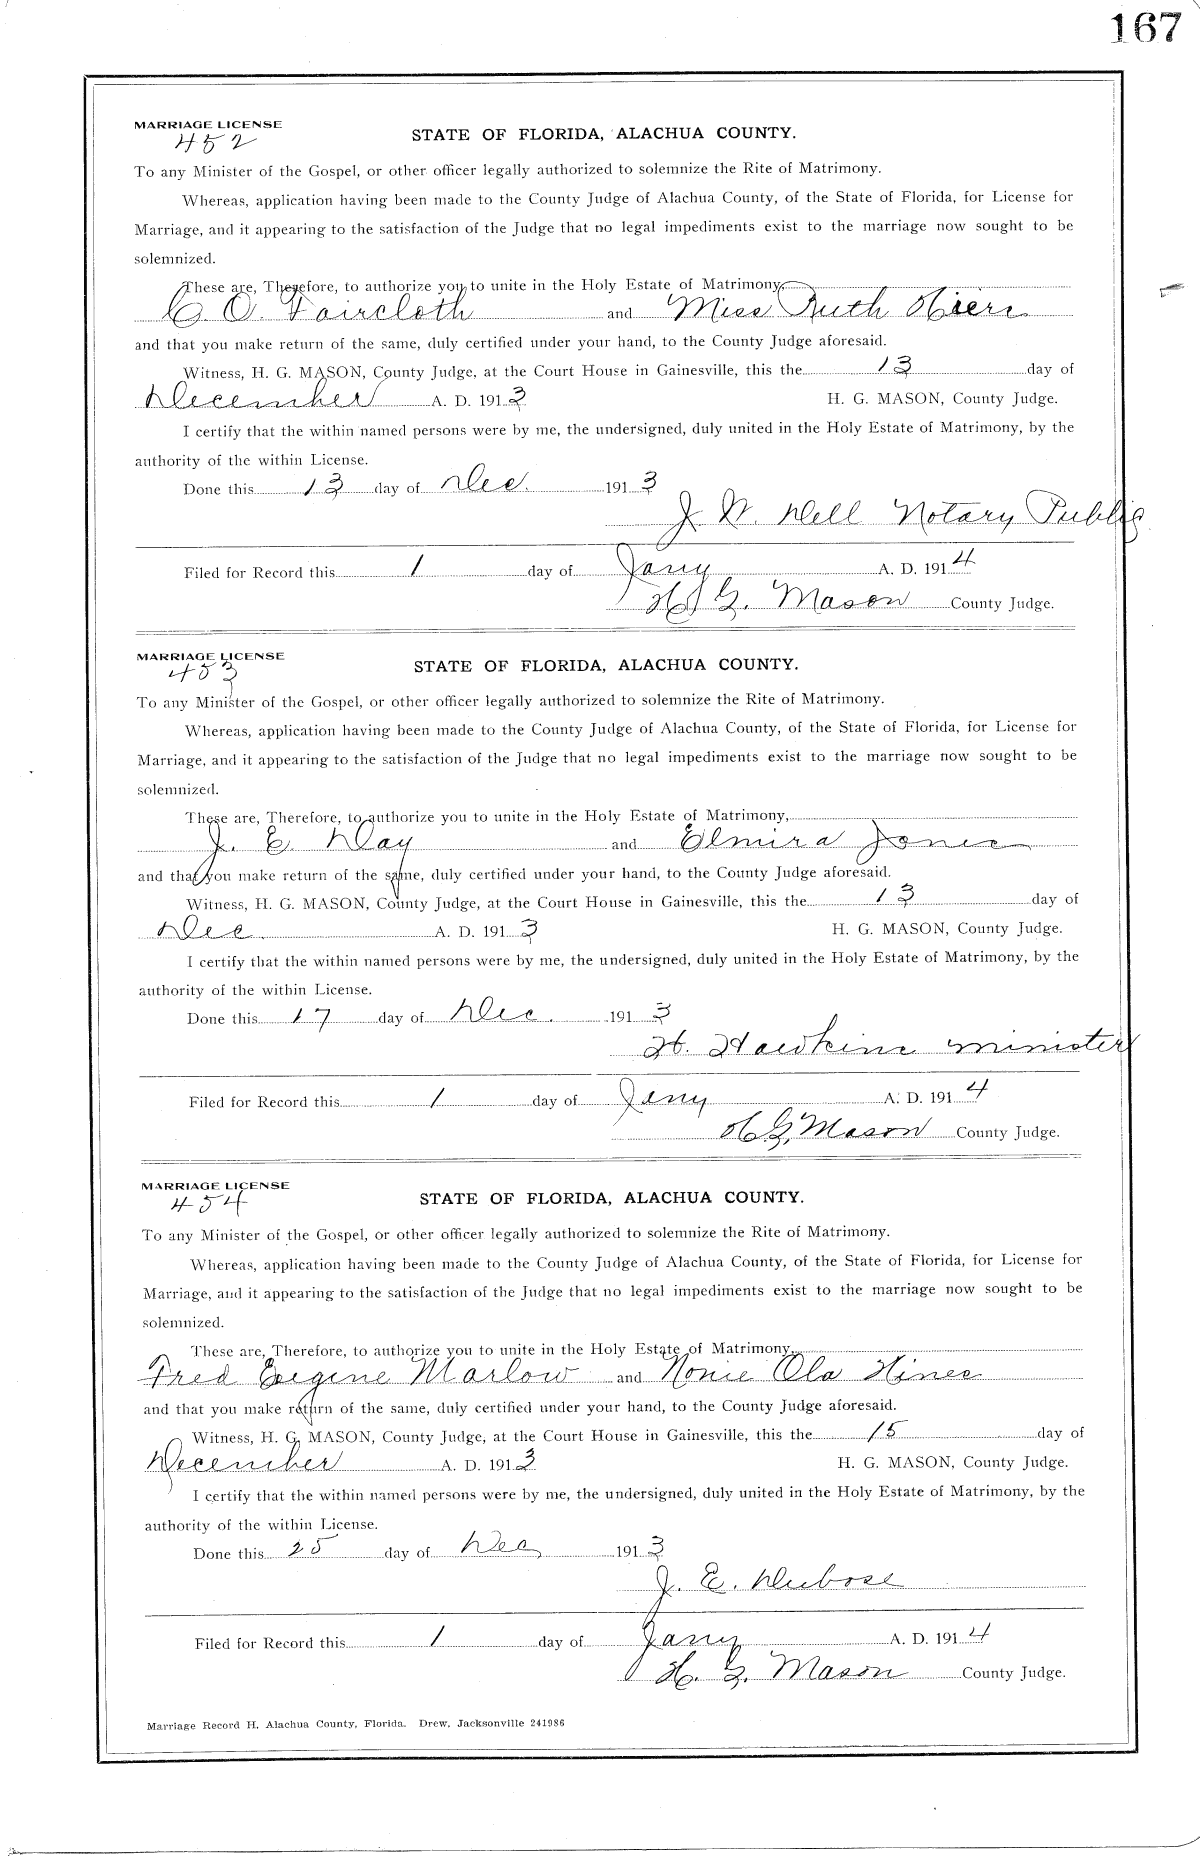 167
MARRIAGE LICENSE
452
STATE OF FLORIDA, ALACHUA COUNTY.
To any Minister of the Gospel, or other officer legally authorized to solemnize the Rite of Matrimony.
Whereas, application having been made to the County Judge of Alachua County, of the State of Florida, for License for
Marriage, and it appearing to the satisfaction of the Judge that no legal impediments exist to the marriage now sought to be
solemnized.
These are, Therefore, to authorize you to unite in the Holy Estate of Matrimony,
C. O. Faircloth and Miss Ruth Hiers
and that you make return of the same, duly certified under your hand, to the County Judge aforesaid.
Witness, H. G. MASON, County Judge, at the Court House in Gainesville, this the 13 day of
December A. D. 1913 H. G. MASON, County Judge.
I certify that the within named persons were by me, the undersigned, duly united in the Holy Estate of Matrimony, by the
authority of the within License.
Done this 13 day of Dec. 1913
J. W. Dell Notary Public
Filed for Record this 1 day of Jany A. D. 1914
H. G. Mason County Judge.
MARRIAGE LICENSE
453
STATE OF FLORIDA, ALACHUA COUNTY.
To any Minister of the Gospel, or other officer legally authorized to solemnize the Rite of Matrimony.
Whereas, application having been made to the County Judge of Alachua County, of the State of Florida, for License for
Marriage, and it appearing to the satisfaction of the Judge that no legal impediments exist to the marriage now sought to be
solemnized.
These are, Therefore, to authorize you to unite in the Holy Estate of Matrimony,
J. E. Day and Elmira Jones
and that you make return of the same, duly certified under your hand, to the County Judge aforesaid.
Witness, H. G. MASON, County Judge, at the Court House in Gainesville, this the 13 day of
Dec. A. D. 1913 H. G. MASON, County Judge.
I certify that the within named persons were by me, the undersigned, duly united in the Holy Estate of Matrimony, by the
authority of the within License.
Done this 17 day of Dec. 1913
H. Hawkins minister
Filed for Record this 1 day of Jany A. D. 1914
H. G. Mason County Judge.
MARRIAGE LICENSE
454
STATE OF FLORIDA, ALACHUA COUNTY.
To any Minister of the Gospel, or other officer legally authorized to solemnize the Rite of Matrimony.
Whereas, application having been made to the County Judge of Alachua County, of the State of Florida, for License for
Marriage, and it appearing to the satisfaction of the Judge that no legal impediments exist to the marriage now sought to be
solemnized.
These are, Therefore, to authorize you to unite in the Holy Estate of Matrimony,
Fred Eugine Marlow and Nonie Ola Hines
and that you make return of the same, duly certified under your hand, to the County Judge aforesaid.
Witness, H. G. MASON, County Judge, at the Court House in Gainesville, this the 15 day of
December A. D. 1913 H. G. MASON, County Judge.
I certify that the within named persons were by me, the undersigned, duly united in the Holy Estate of Matrimony, by the
authority of the within License.
Done this 25 day of Dec 1913
J. E. Dubose
Filed for Record this 1 day of Jany A. D. 1914
H. G. Mason County Judge.
Marriage Record H, Alachua County, Florida. Drew, Jacksonville 241986